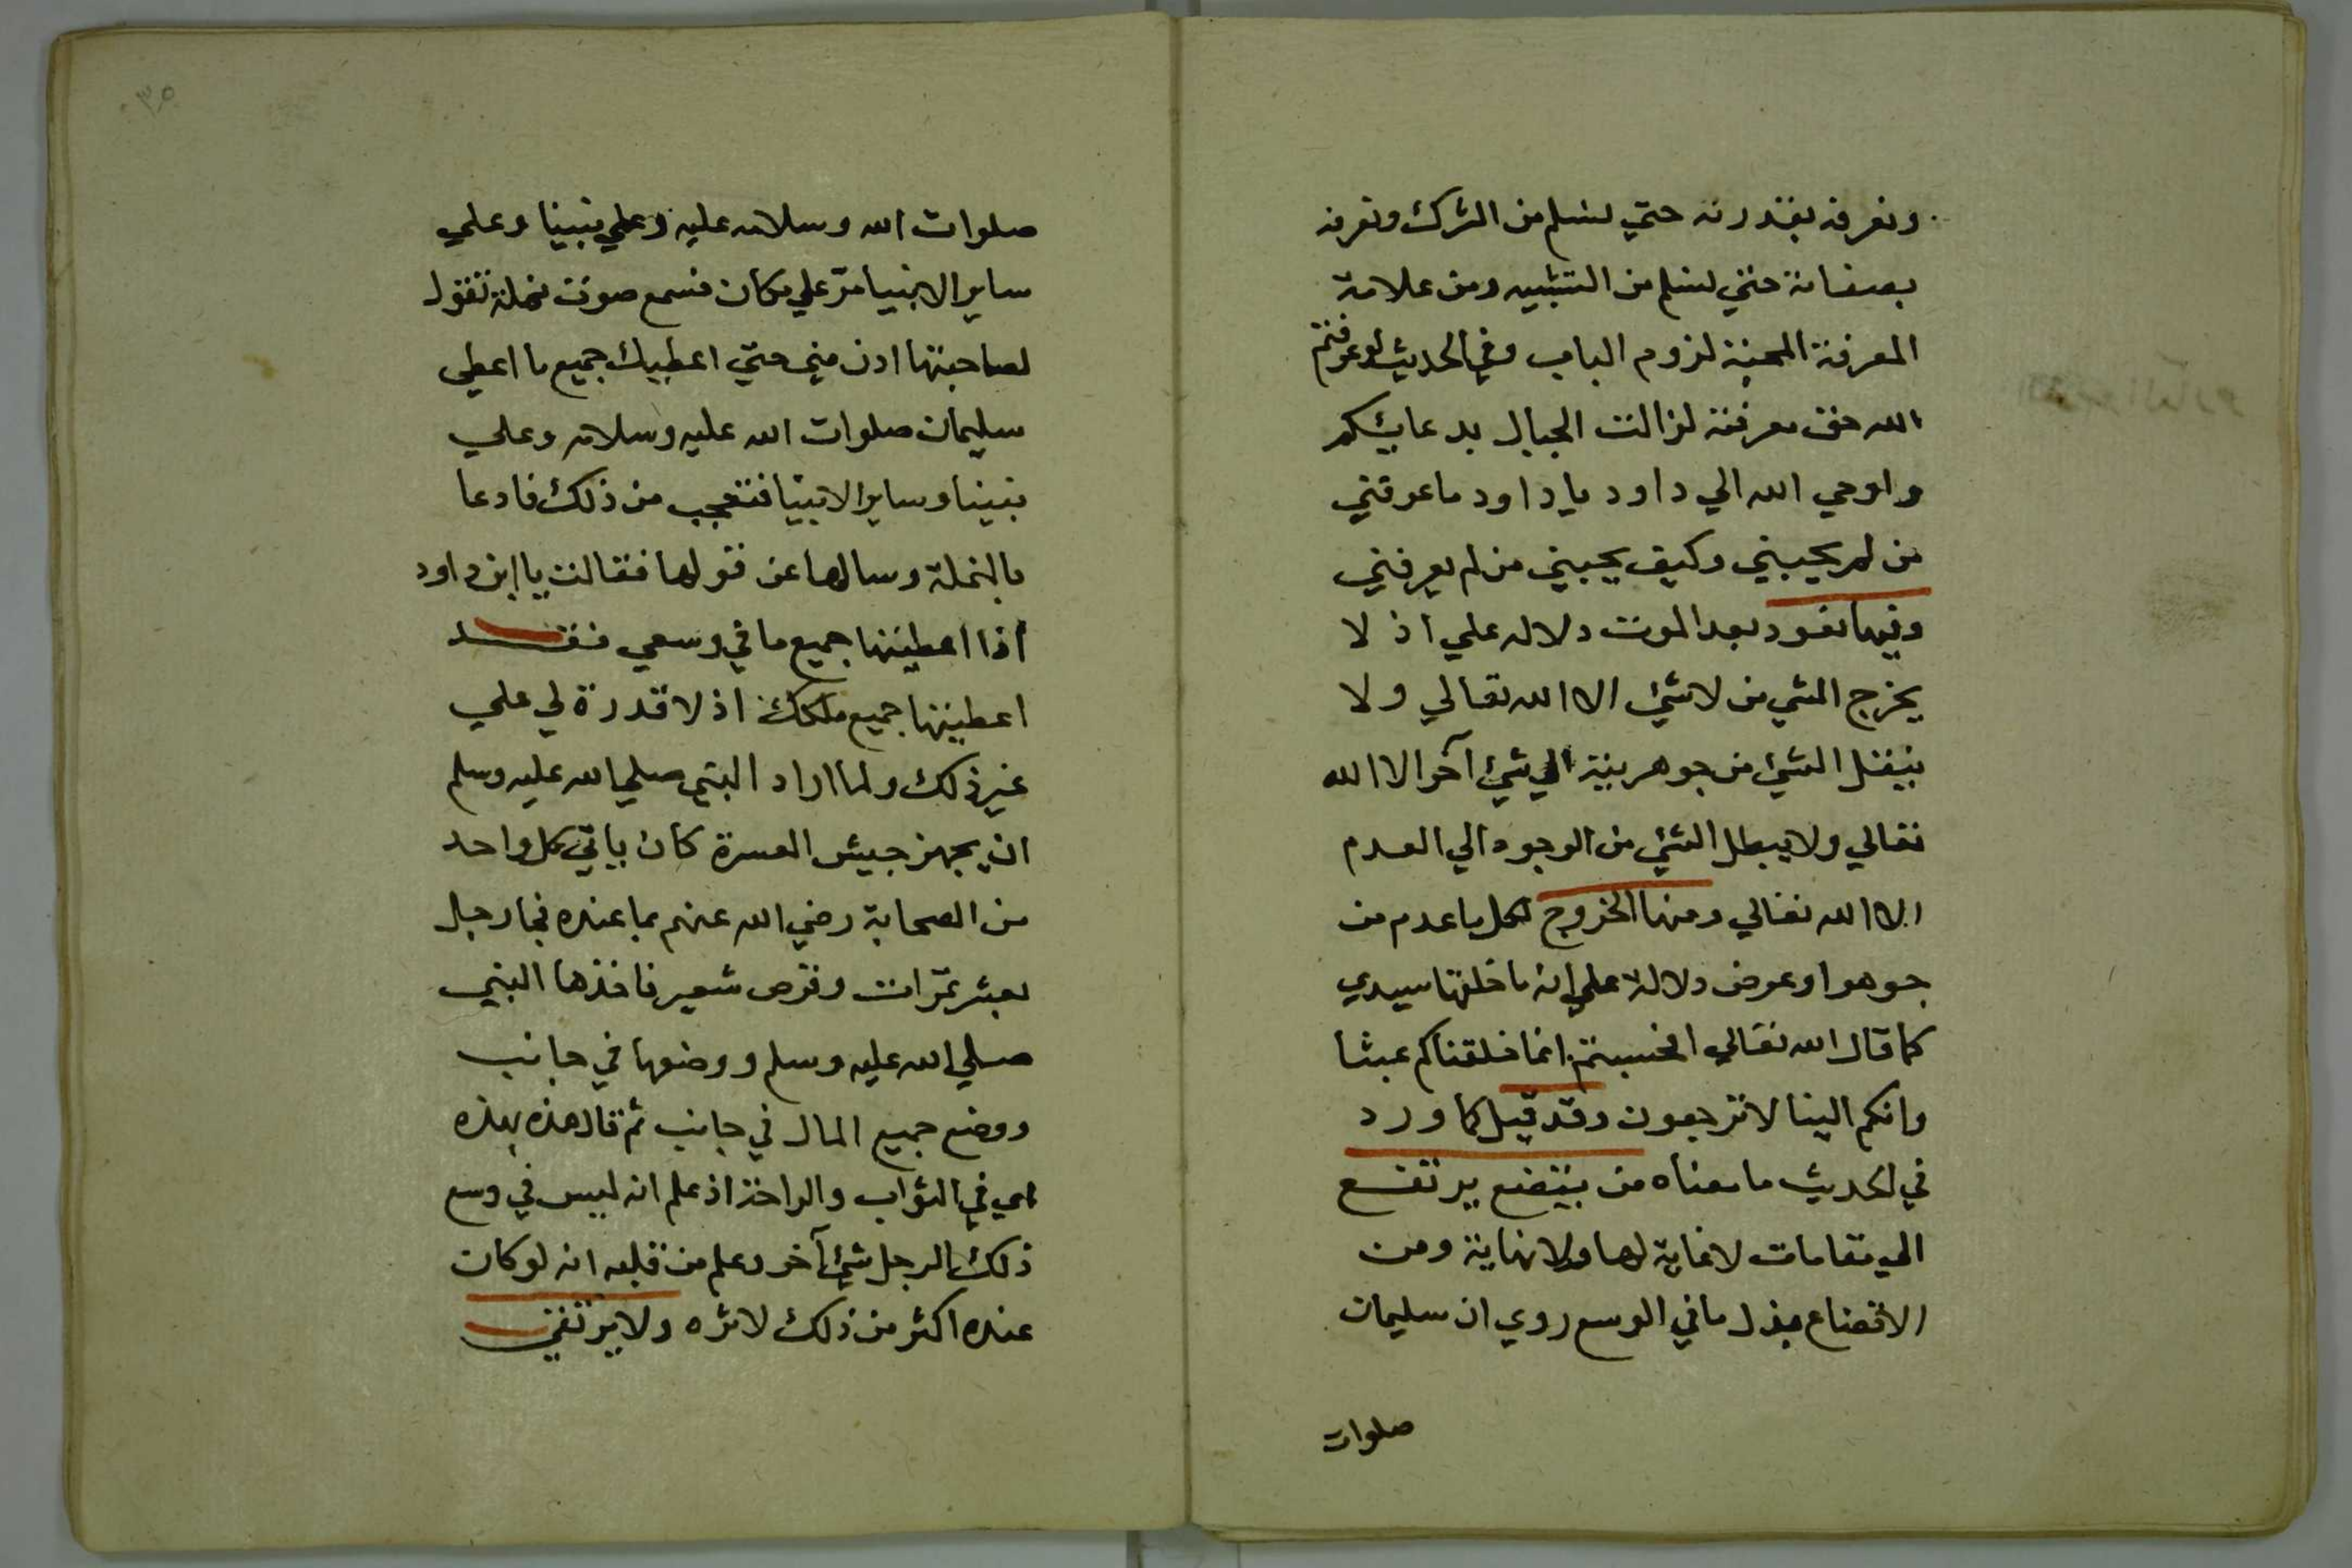 وتعرفه بقدرته حتي تسلم من الشرك وتعرفه
بصفاته حتي تسلم من التشبيه ومن علامة
المعرفة المحبة لزوم الباب وفي الحديث لو عرفتم
الله حق معرفته لزالت الجبال بدعايكم
واوحي الله الي داود يا داود ما عرفني
من لم يحببني وكيف يحببني من لم يعرفني
وفيها تعود بعد الموت دلالة علي اذ لا
يخرج الشي من لا شي الا الله تعالي ولا
ينقل الشي من جوهرية الي شي آخر الا الله
تعالي ولا يبطل الشي من الوجود الي العدم
الا الله تعالي ومنها الخروج لكل ما عدم من
جوهر او عرض دلالة علي انه ما خلقها سيدي
كما قال الله تعالي افحسبتم انما خلقناكم عبثا
وانكم الينا لا ترجعون وقد قيل كما ورد
في الحديث ما معناه من يتضع يرتفع
الي مقامات لا غاية لها ولا نهاية ومن
الاتضاع بذل ما في الوسع روي ان سليمان
صلوات
٣٥
صلوات الله وسلامه عليه وعلي نبينا وعلي
ساير الانبيا مر علي مكان فسمع صوت نملة تقول
لصاحبتها ادن مني حتي اعطيك جميع ما اعطي
سليمان صلوات الله عليه وسلامه وعلي
نبينا وساير الانبيا فتعجب من ذلك فادعا
بالنملة وسالها عن قولها فقالت يا ابن داود
اذا اعطيتها جميع ما في وسعي فقد
اعطيتها جميع ملكك اذ لا قدرة لي علي
غير ذلك ولما اراد النبي صلي الله عليه وسلم
ان يجهز جيش العسرة كان ياتي كل واحد
من الصحابة رضي الله عنهم بما عنده فجا رجل
بعشر تمرات وقرص شعير فاخذها النبي
صلي الله عليه وسلم ووضعها في جانب
ووضع جميع المال في جانب ثم قال هذه بهذه
اي في الثواب والراحة اذ علم انه ليس في وسع
ذلك الرجل شي آخر وعلم من قلبه انه لو كان
عنده اكثر من ذلك لاثره ولا يرتقي